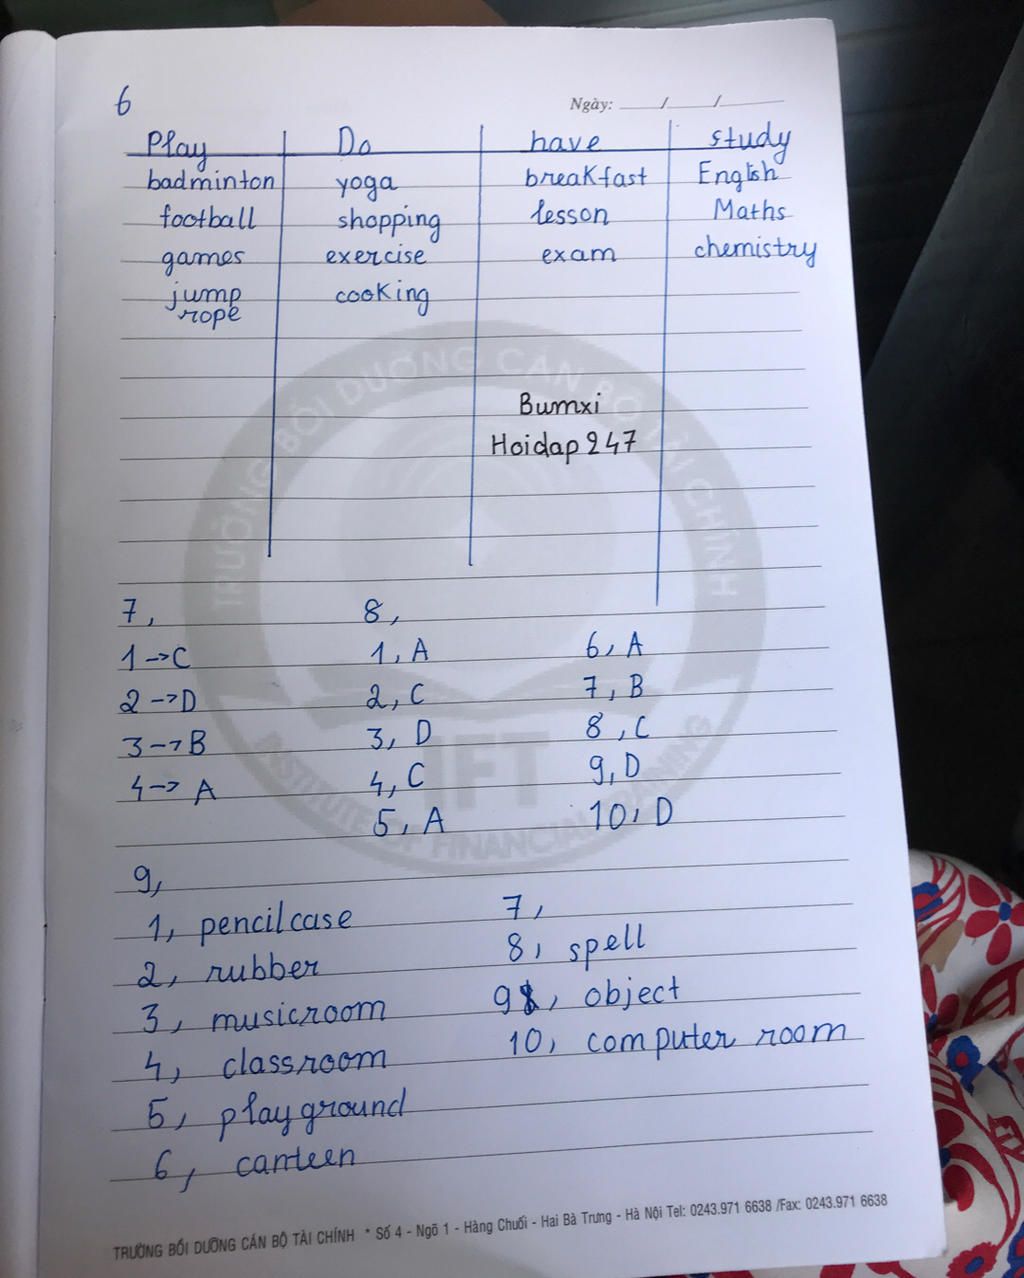 6
Ngày: ____/____/______
Play Do have study
badminton yoga breakfast English
football shopping lesson Maths
games exercise exam chemistry
jump cooking
rope
Bumxi
Hoidap247
TRƯỜNG BỒI DƯỠNG CÁN BỘ TÀI CHÍNH
7, 8,
1->C 1, A 6, A
2->D 2, C 7, B
3->B 3, D 8, C
4->A 4, C 9, D
5, A 10, D
IFT
INSTITUTE OF FINANCIAL TRAINING
9,
1, pencilcase 7,
2, rubber 8, spell
3, musicroom 9, object
4, classroom 10, computer room
5, playground
6, canteen
TRƯỜNG BỒI DƯỠNG CÁN BỘ TÀI CHÍNH * Số 4 - Ngõ 1 - Hàng Chuối - Hai Bà Trưng - Hà Nội Tel: 0243.971 6638 /Fax: 0243.971 6638